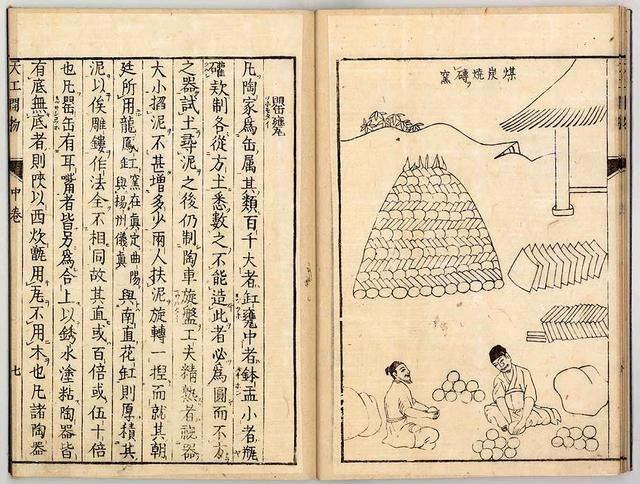 煤炭燒磚窯
罌甕
凡陶家為缶属其類百千大者缸甕中者鉢盂小者瓶
礶款制各從方土悉數之不能造此者必為圓而不方
之器試土尋泥之後仍制陶車旋盤工夫精熟者視器
大小掐泥不甚增多少兩人扶泥旋轉一捏而就其朝
廷所用龍鳳缸窯在真定曲陽與楊州儀真與南直花缸則厚積其
泥以俟雕鏤作法全不相同故其直或百倍或伍十倍
也凡罌缶有耳嘴者皆另為合上以銹水塗粘陶器皆
有底無底者則陝以西炊甑用瓦不用木也凡諸陶器
天工開物 中卷 七